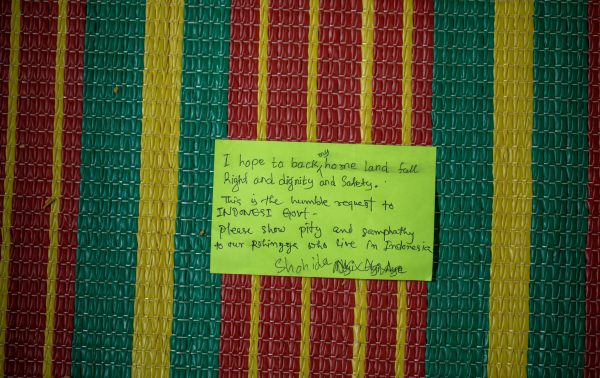 I hope to back my home land full
Right and dignity and Safety.
This is the humble request to
INDONESI Govt-
please show pity and samphathy
to our Rohingya who live in Indonesia
Shohida